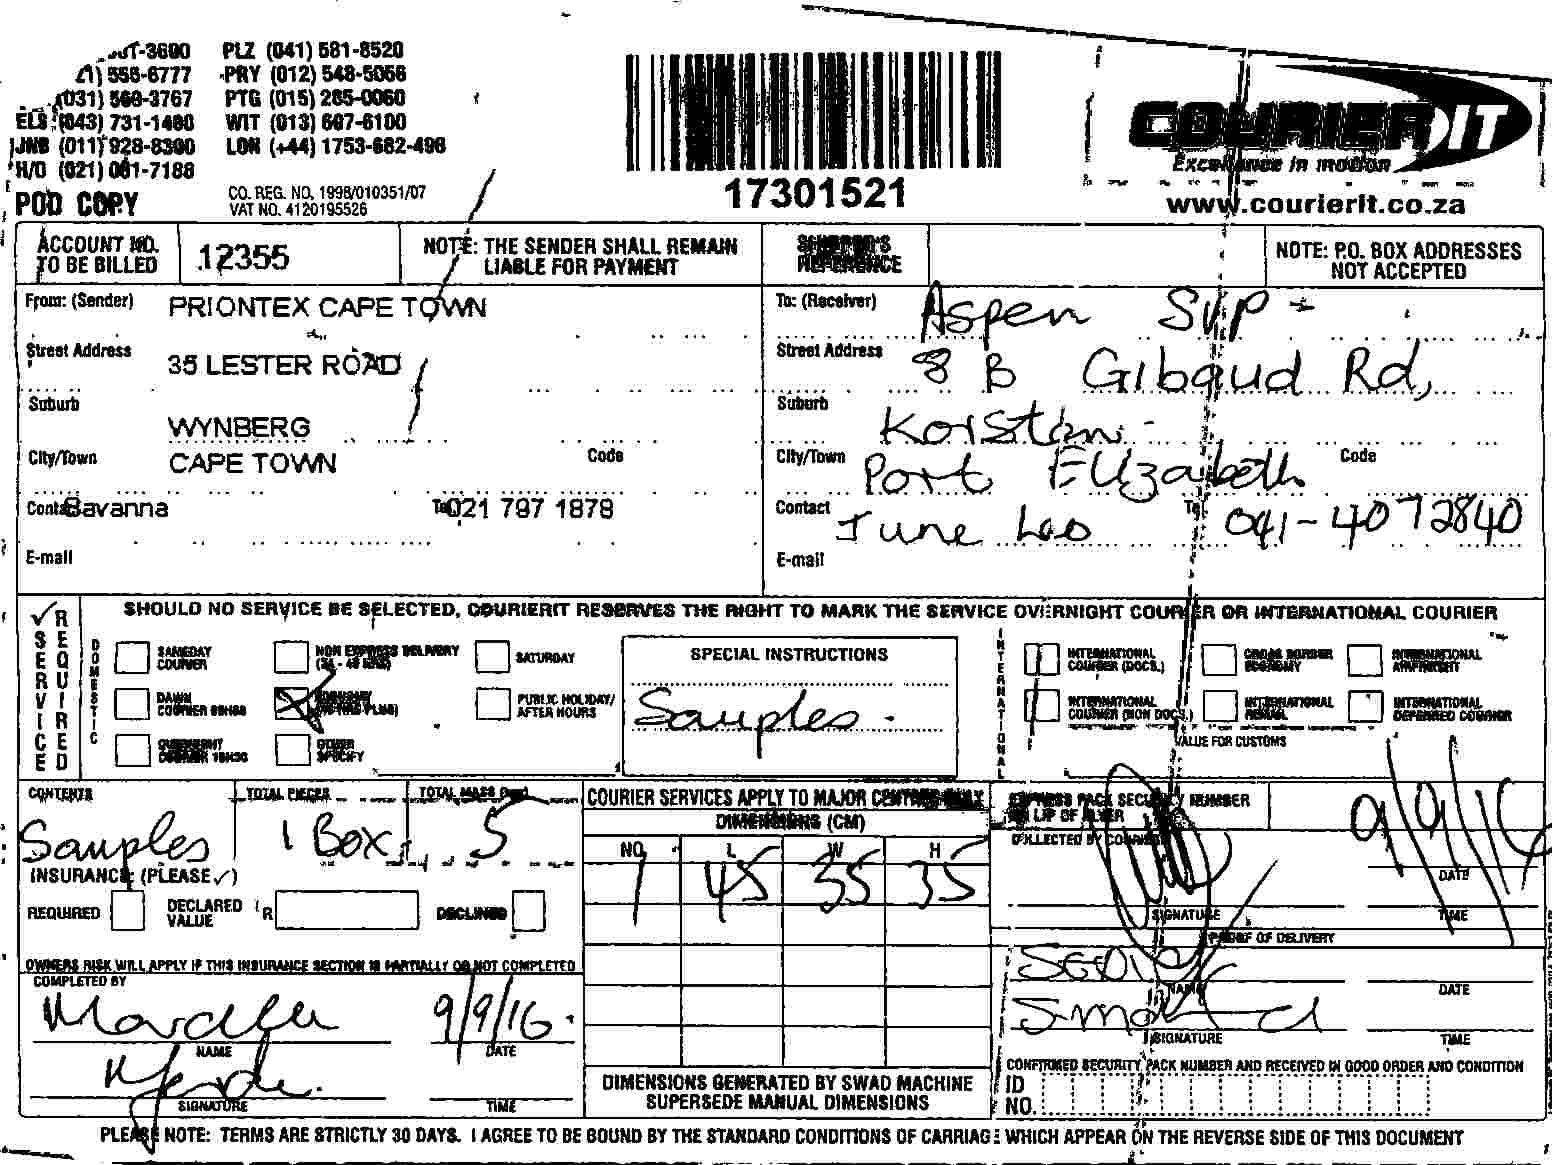 -3600 PLZ (041) 581-8520
555-6777 PRY (012) 548-5056
(031) 569-3767 PTG (015) 285-0060
ELS (043) 731-1480 WIT (013) 607-6100
JNB (011) 928-8300 LON (+44) 1753-682-496
H/O (021) 081-7188
POD COPY
CO. REG. NO. 1998/010351/07
VAT NO. 4120195526
17301521
COURIER IT
Excellence in motion
www.courierit.co.za
ACCOUNT NO. TO BE BILLED 12355
NOTE: THE SENDER SHALL REMAIN LIABLE FOR PAYMENT
SHIPPER'S REFERENCE
NOTE: P.O. BOX ADDRESSES NOT ACCEPTED
From: (Sender) PRIONTEX CAPE TOWN
Street Address 35 LESTER ROAD
Suburb WYNBERG
City/Town CAPE TOWN Code
Contact Savanna Tel 021 797 1878
E-mail
To: (Receiver) Aspen SVP
Street Address 8 B Gibaud Rd,
Suburb Korsten
City/Town Port Elizabeth Code
Contact June Tel 041-4072840
E-mail
SERVICE REQUIRED
SHOULD NO SERVICE BE SELECTED, COURIERIT RESERVES THE RIGHT TO MARK THE SERVICE OVERNIGHT COURIER OR INTERNATIONAL COURIER
DOMESTIC
SAMEDAY COURIER
NON EXPRESS DELIVERY
SATURDAY
DAWN COURIER
PUBLIC HOLIDAY/ AFTER HOURS
OVERNIGHT COURIER
OTHER SPECIFY
SPECIAL INSTRUCTIONS
Samples.
INTERNATIONAL
INTERNATIONAL COURIER (DOCS.)
CROSS BORDER ECONOMY
INTERNATIONAL AIRFREIGHT
INTERNATIONAL COURIER (NON DOCS.)
INTERNATIONAL
INTERNATIONAL DEFERRED COURIER
VALUE FOR CUSTOMS
CONTENTS TOTAL PIECES TOTAL MASS
Samples 1 Box 5
INSURANCE: (PLEASE ✓)
REQUIRED DECLARED VALUE R DECLINED
OWNERS RISK WILL APPLY IF THIS INSURANCE SECTION IS PARTIALLY OR NOT COMPLETED
COMPLETED BY
9/9/16.
NAME DATE
SIGNATURE TIME
COURIER SERVICES APPLY TO MAJOR CENTRES ONLY
DIMENSIONS (CM)
NO. L W H
1 45 35 35
DIMENSIONS GENERATED BY SWAD MACHINE SUPERSEDE MANUAL DIMENSIONS
EXPRESS PACK SECURITY NUMBER ON LIP OF FLYER
COLLECTED BY COURIER
9/9/16
DATE
SIGNATURE TIME
PROOF OF DELIVERY
NAME DATE
SIGNATURE TIME
CONFIRMED SECURITY PACK NUMBER AND RECEIVED IN GOOD ORDER AND CONDITION
ID NO.
PLEASE NOTE: TERMS ARE STRICTLY 30 DAYS. I AGREE TO BE BOUND BY THE STANDARD CONDITIONS OF CARRIAGE WHICH APPEAR ON THE REVERSE SIDE OF THIS DOCUMENT